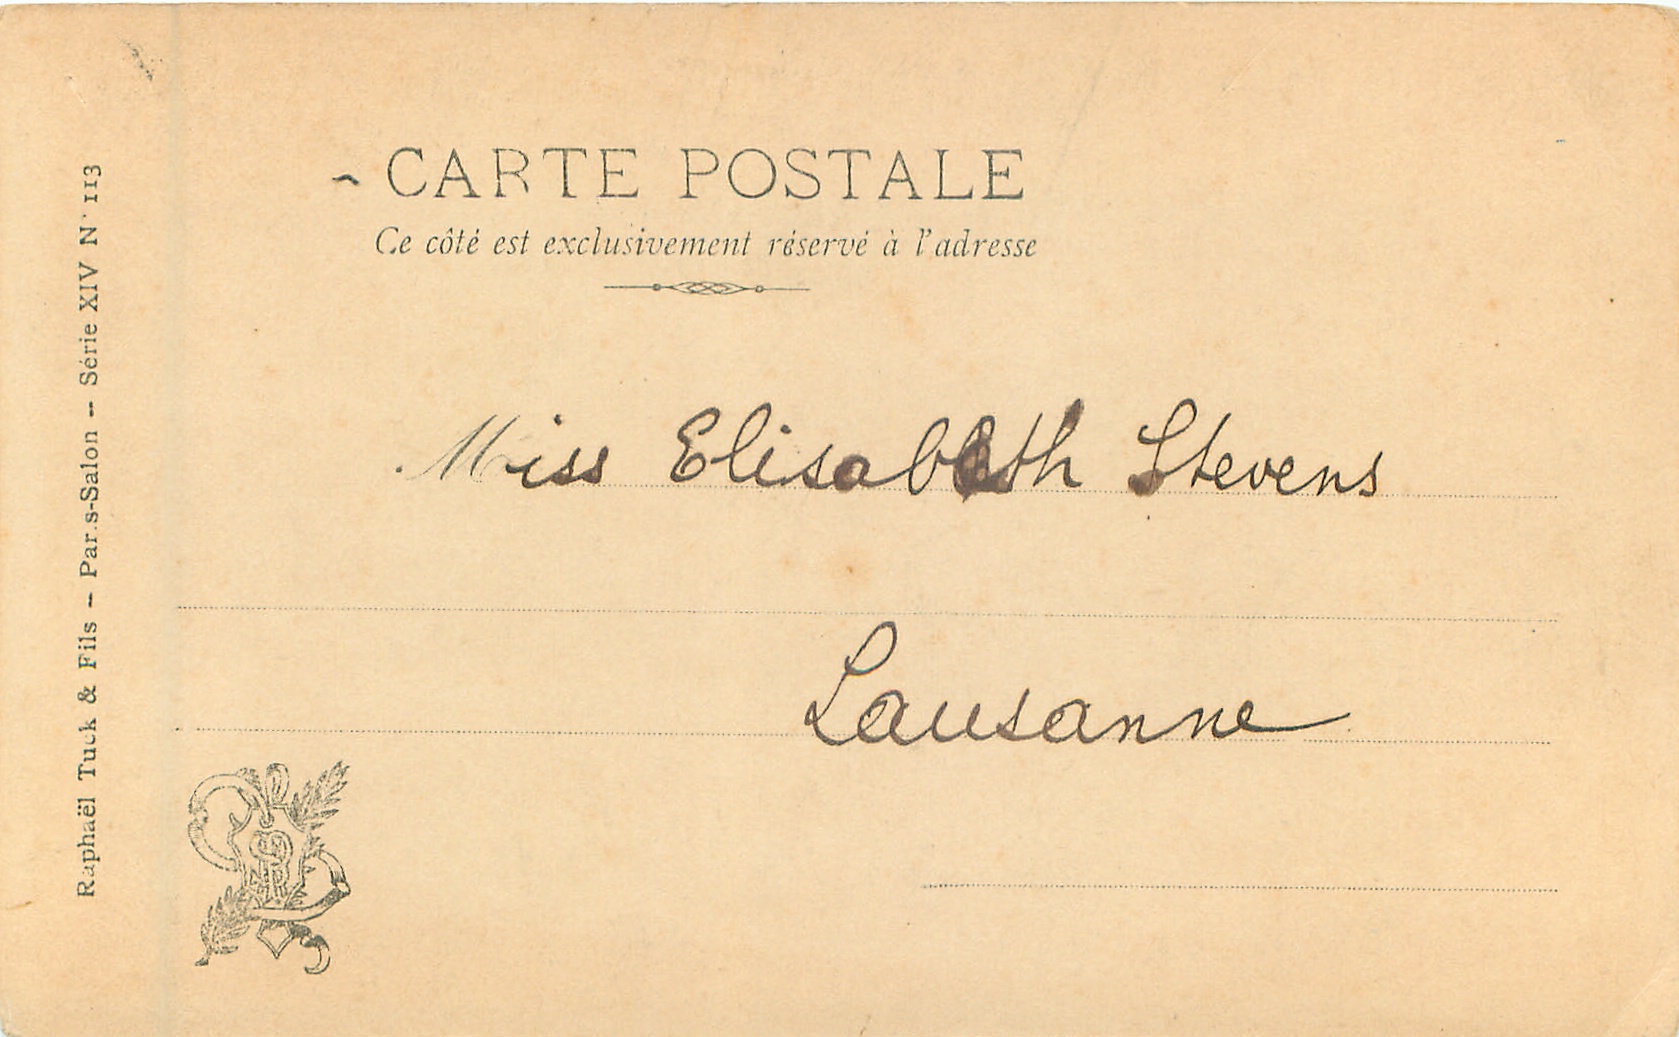 CARTE POSTALE
Ce côté est exclusivement réservé à l'adresse
Miss Elisabeth Stevens
Lausanne
Raphaël Tuck & Fils -- Paris-Salon -- Série XIV N° 113